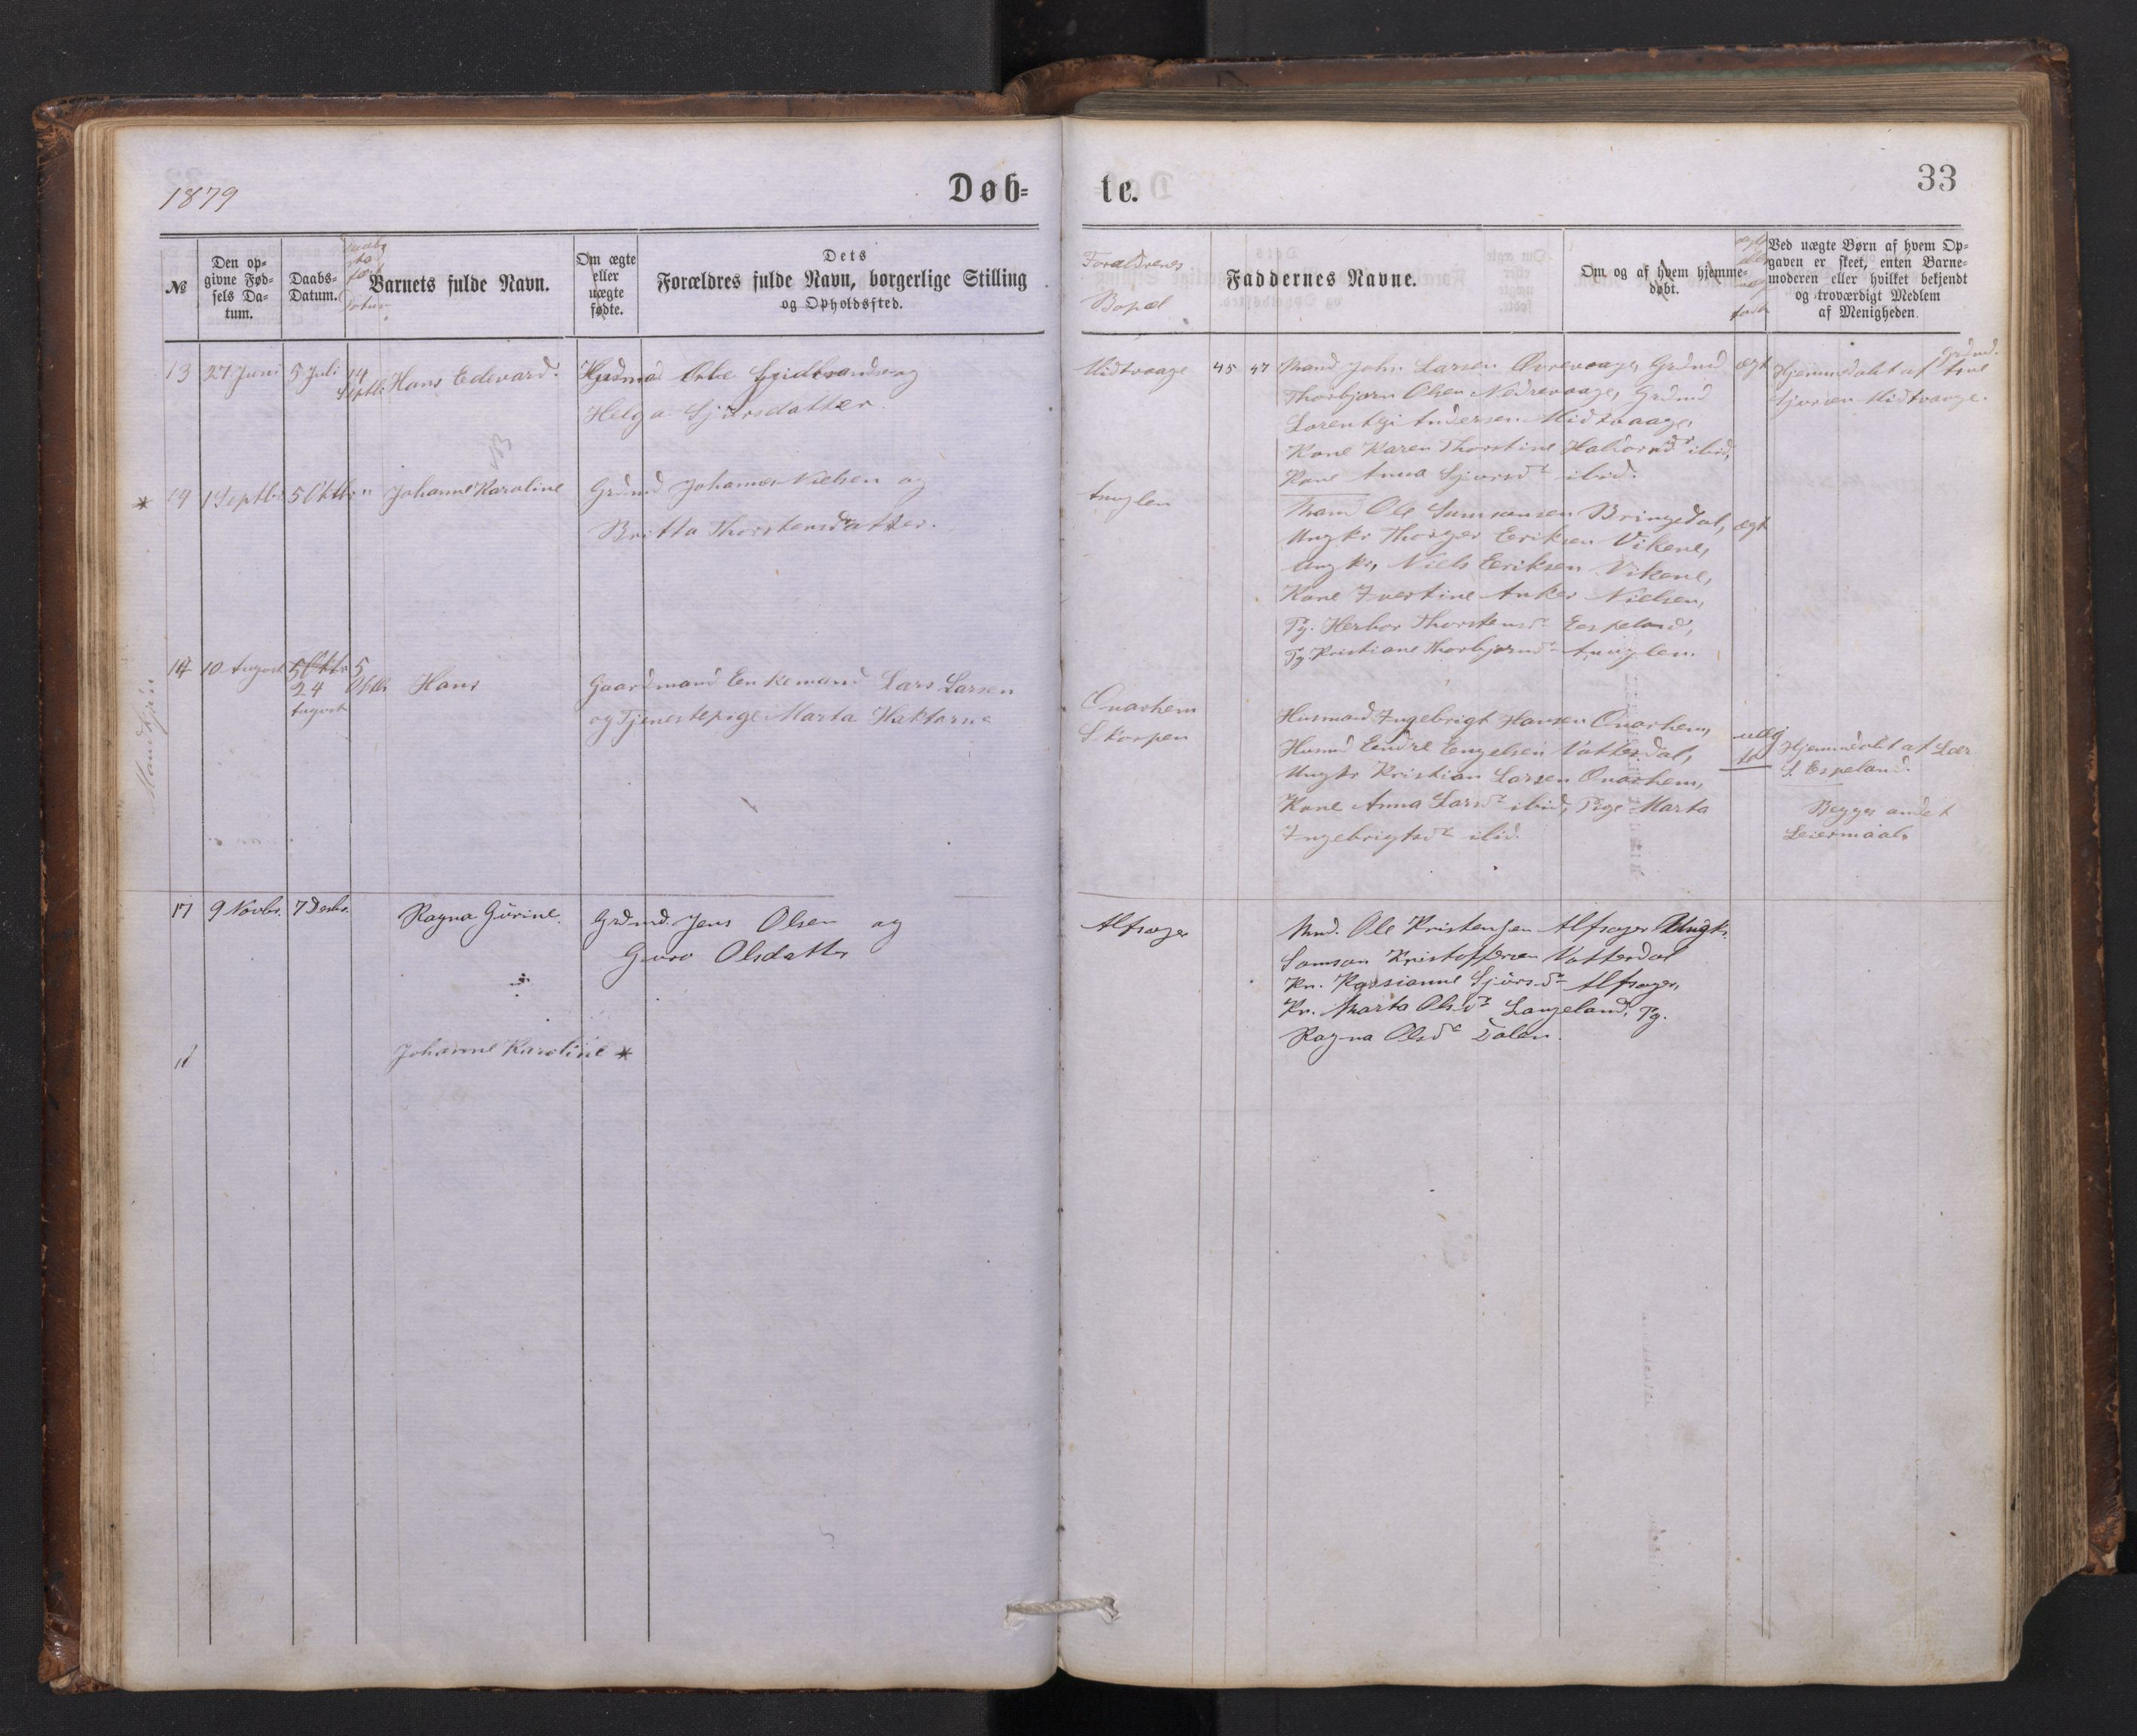 1879
Døb-
te.
33
№
Den op-
givne Fød-
sels Da-
tum.
Daabs-
Datum.
Barnets fulde Navn.
Om ægte
eller
uægte
fødte.
Dets
Forældres fulde Navn, borgerlige Stilling
og Opholdssted.
Forældrenes
Bopæl
Faddernes Navne.
Om og af hvem hjemme-
døbt.
Ved uægte Børn af hvem Op-
gaven er skeet, enten Barne-
moderen eller hvilket bekjendt
og troværdigt Medlem
af Menigheden.
13 27 Juni 5 Juli 14 Septbr Hans Edevard.
og
Helga Sjursdatter.
Midtvaage 45 47 Mand John Larsen Øvrevaage, Grdmd
Thorbjørn Olsen Nedrevaage, Grdmd
Andersen Midtvaage,
Kone Karen Thorstine ibid,
Kone Anna Sjursdr ibid.
ægt
Hjemmedøbt af Grdmd.
Midtvaage.
* 19 1 Septbr 5 Oktbr " Johanne Karoline
Grdmd Johannes Nielsen og
Britta Thorstensdatter.
Ole Samsonsen Bringedal,
Ungkr Thorger Eeriksen Vikene,
Ungkr, Niels Eeriksen Vikene,
Kone Ivertine Anker Nielsen,
Pg. Herbor Thorstensdr Eespeland,
Pg. Kristiane Thorbjørnsdr
ægt
Mandkjøn
14 10 August 5 Oktbr 5
24 Oktbr
August
Hans
Gaardmand Eenkemand Lars Larsen
og Tjenestepige Marta
Onarhem
Skorpen
Husmand Ingebrigt Hansen Onarhem,
Husmd Eendre Engelsen Vatterdal,
Ungkr Kristian Larsen Onarhem,
Kone Anna Larsdr ibid, Pige Marta
Ingebrigtsdr ibid.
uæg
te
Hjemmedøbt af Lær
S. Espeland.
Begges andet
Leiermaal.
17 9 Novbr. 7 Decbr. Ragna Gurine.
Grdmd. Jens Olsen og
Guro Olsdatter
Alfsager
Md. Ole Kristensen Alfsager Ungkr.
Samson Kristoffersen Vatterdal
Kn. Sjursdr Alfsager,
Kn. Marta Olsdr Langeland, Pg.
Ragna Olsdr Dalen.
Johanne Karoline *